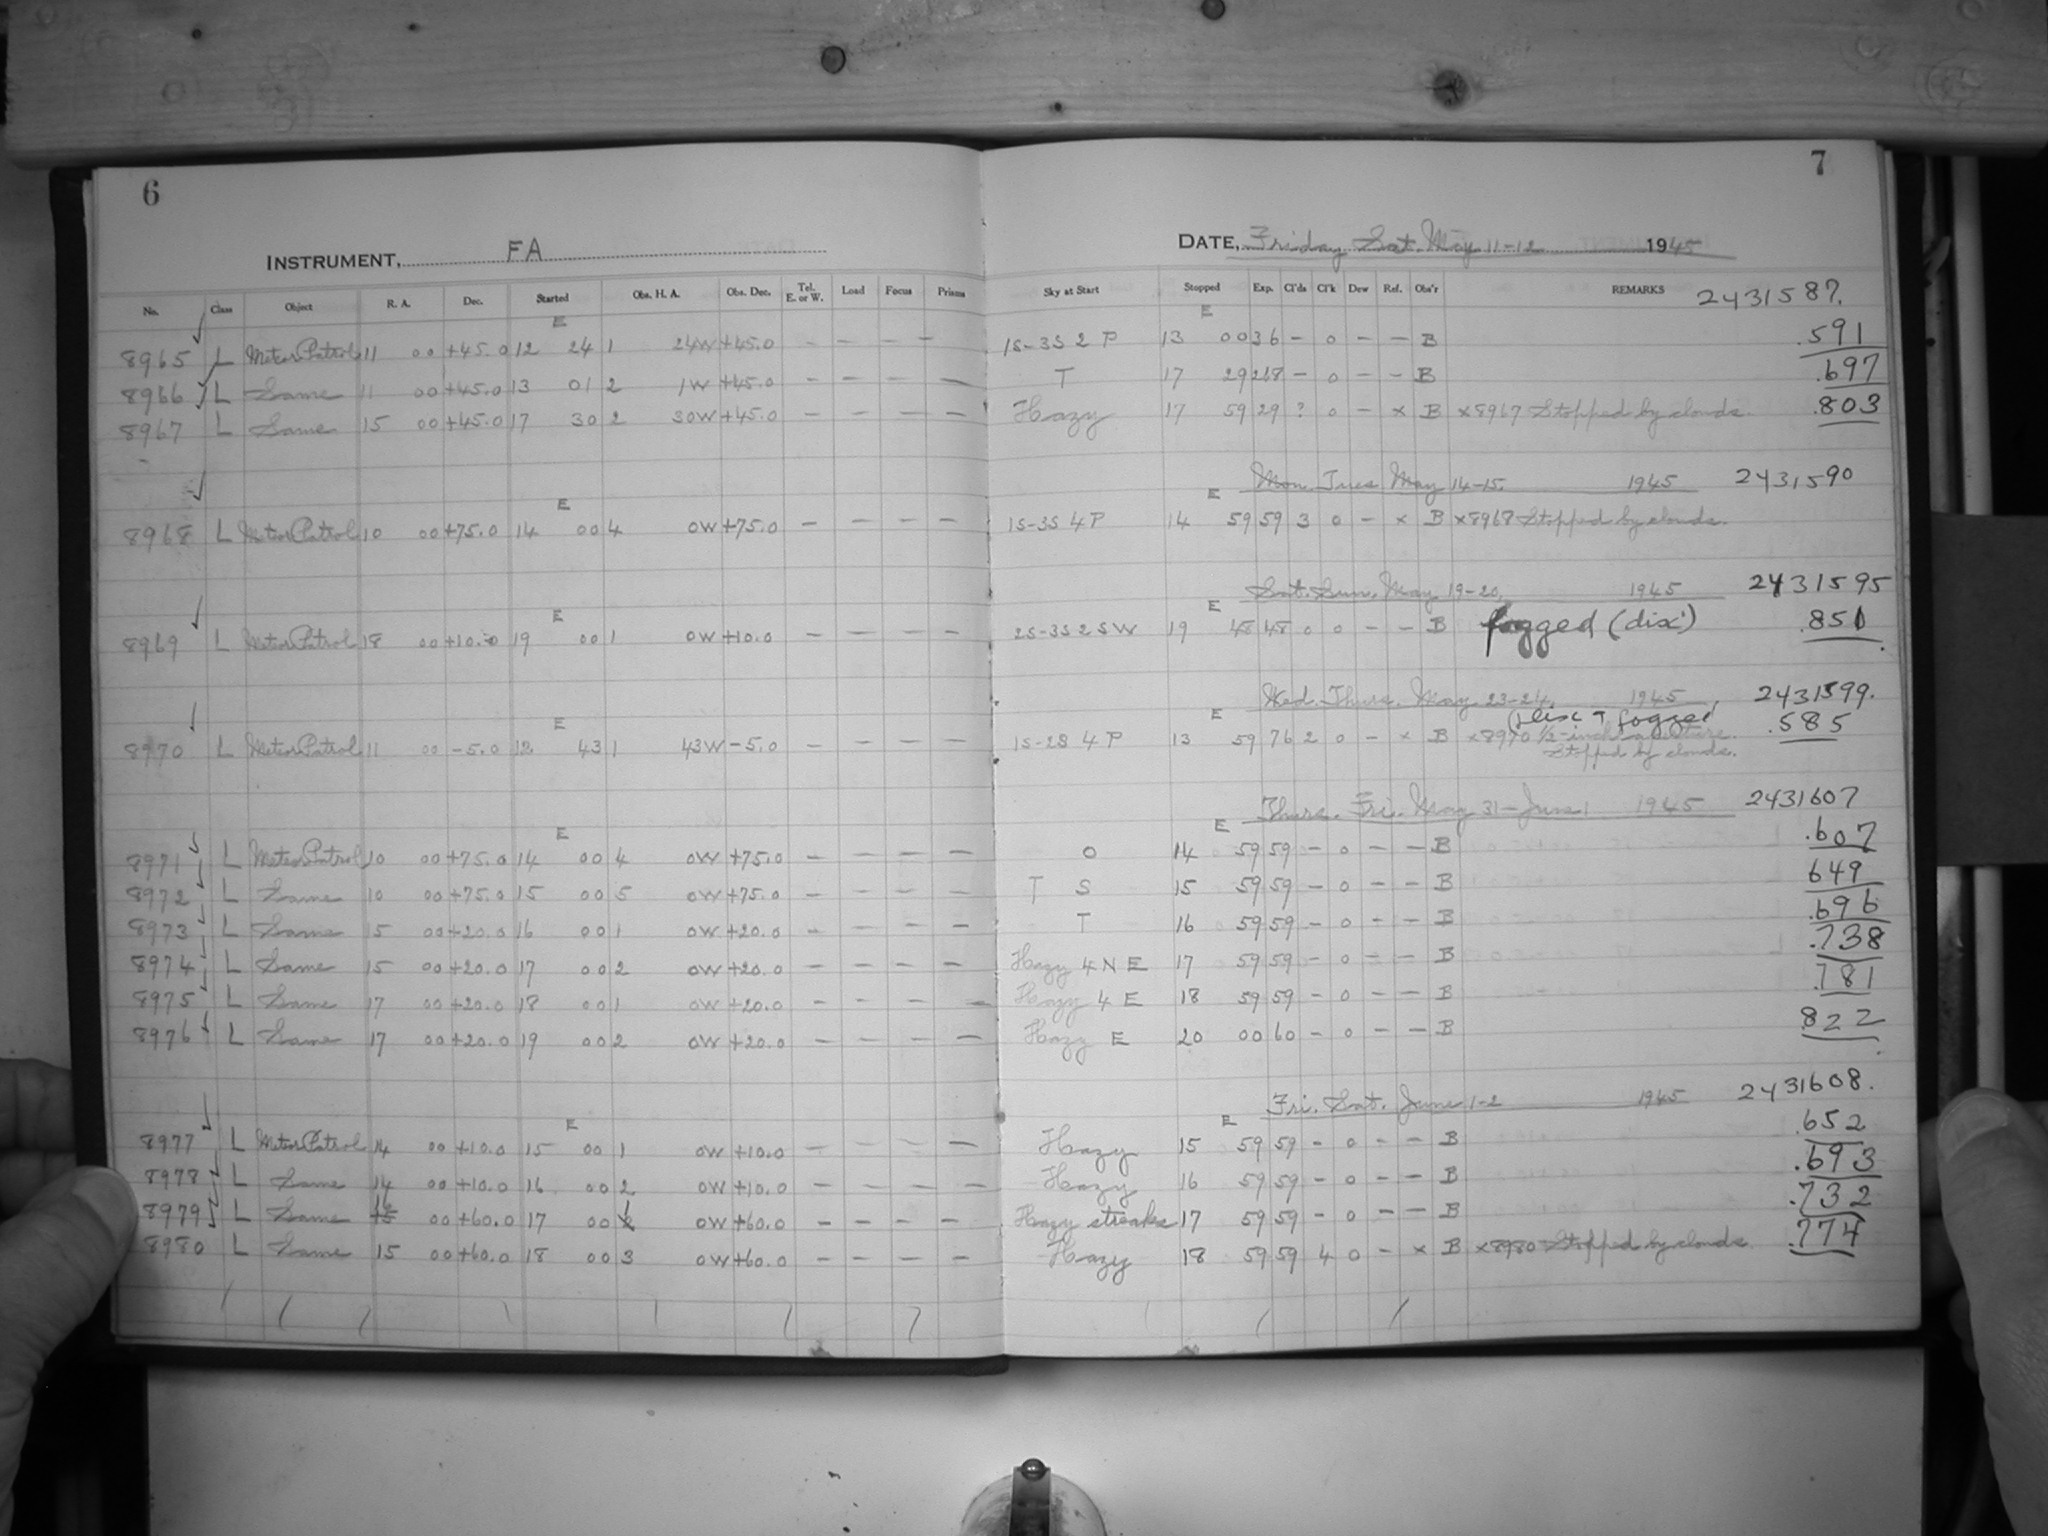 6
INSTRUMENT, FA
No. Class Object R. A. Dec. Started Obs. H. A. Obs. Dec. Tel. E. or W. Load Focus Prisms
E
8965 L Meteor Patrol 11 00 +45.0 12 24 1 24W +45.0 - - - -
8966 L Same 11 00 +45.0 13 01 2 1W +45.0 - - - -
8967 L Same 15 00 +45.0 17 30 2 30W +45.0 - - - -
E
8968 L Meteor Patrol 10 00 +75.0 14 00 4 0W +75.0 - - - -
E
8969 L Meteor Patrol 18 00 +10.0 19 00 1 0W +10.0 - - - -
E
8970 L Meteor Patrol 11 00 -5.0 12 43 1 43W -5.0 - - - -
E
8971 L Meteor Patrol 10 00 +75.0 14 00 4 0W +75.0 - - - -
8972 L Same 10 00 +75.0 15 00 5 0W +75.0 - - - -
8973 L Same 15 00 +20.0 16 00 1 0W +20.0 - - - -
8974 L Same 15 00 +20.0 17 00 2 0W +20.0 - - - -
8975 L Same 17 00 +20.0 18 00 1 0W +20.0 - - - -
8976 L Same 17 00 +20.0 19 00 2 0W +20.0 - - - -
E
8977 L Meteor Patrol 14 00 +10.0 15 00 1 0W +10.0 - - - -
8978 L Same 14 00 +10.0 16 00 2 0W +10.0 - - - -
16
8979 L Same 15 00 +60.0 17 00 1 0W +60.0 - - - -
8980 L Same 15 00 +60.0 18 00 3 0W +60.0 - - - -
7
DATE, Friday Sat. May 11-12 1945
Sky at Start Stopped Exp. Cl'ds Cl'k Dew Ref. Obs'r REMARKS 2431587.
E
1S-3S 2 P 13 00 36 - 0 - - B .591
T 17 29 268 - 0 - - B .697
Hazy 17 59 29 ? 0 - x B x8967 Stopped by clouds. .803
Mon. Tues. May 14-15. 1945 2431590
E
1S-3S 4 P 14 59 59 3 0 - x B x8968 Stopped by clouds.
Sat. Sun. May 19-20, 1945 2431595
E
2S-3S 2 SW 19 48 48 0 0 - - B fogged (disc) .851
Wed. Thurs. May 23-24, 1945 2431599.
E
(disc + fogged .585
1S-2S 4 P 13 59 76 2 0 - x B x8970 1/2-inch aperture.
Stopped by clouds.
Thurs. Fri. May 31-June 1 1945 2431607
E
0 14 59 59 - 0 - - B .607
T S 15 59 59 - 0 - - B 649
T 16 59 59 - 0 - - B .696
Hazy 4 N E 17 59 59 - 0 - - B .738
Hazy 4 E 18 59 59 - 0 - - B .781
Hazy E 20 00 60 - 0 - - B 822
Fri. Sat. June 1-2 1945 2431608.
E
Hazy 15 59 59 - 0 - - B .652
Hazy 16 59 59 - 0 - - B .693
Hazy streaks 17 59 59 - 0 - - B .732
Hazy 18 59 59 4 0 - x B x8980 Stopped by clouds .774